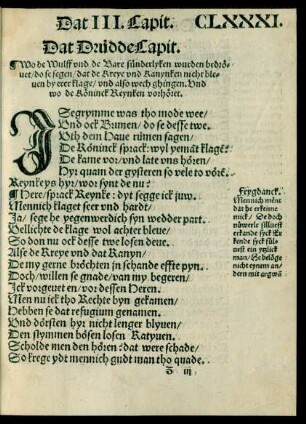 Dat III. Capit. CLXXXI.
Dat Drüdde Capit.
¶ Wo de Wulff vnd de Bare sünderlyken wurden bedrö-
uet/do se segen/dat de Kreye vnd Kanynken nicht ble-
uen by erer klage/vnd also wech ghingen. Vnd
wo de Köninck Reynken vorhöret.
ISegrymme was tho mode wee/
Vnd ock Brunen/do se desse twe.
Vth dem Haue rümen sagen/
De Köninck sprack: wyl yemät klagē?
De kame vor/vnd late vns hören/
Hyr quam der gysteren so vele to vörē.
Reynkeys hyr/wor synt de nu?
¶ Here/sprack Reynke: dyt segge ick juw.
Mennich klaget seer vnd hardt/
Ja/sege he yegenwerdich syn wedder part.
Vellichte de klage wol achter bleue/
So don nu ock desse twe losen deue.
Alse de Kreye vnd dat Kanyn/
De my gerne bröchten in schande effte pyn.
Doch/willen se gnade/van my begeren/
Ick vorgeuet en/vor dessen Heren.
Men nu ick tho Rechte byn gekamen/
Hebben se dat refugium genamen.
Vnd dörsten hyr nicht lenger blyuen/
Den slymmen bösen losen Katyuen.
Scholde men den hören? dat were schade/
So krege ydt mennich gudt man tho quade.
Freygdanck.
Mennich mēnt
dat he erkēne
mick / Se doch
sülues
nick / He beläge
nicht eynem an-
dern mit argwā